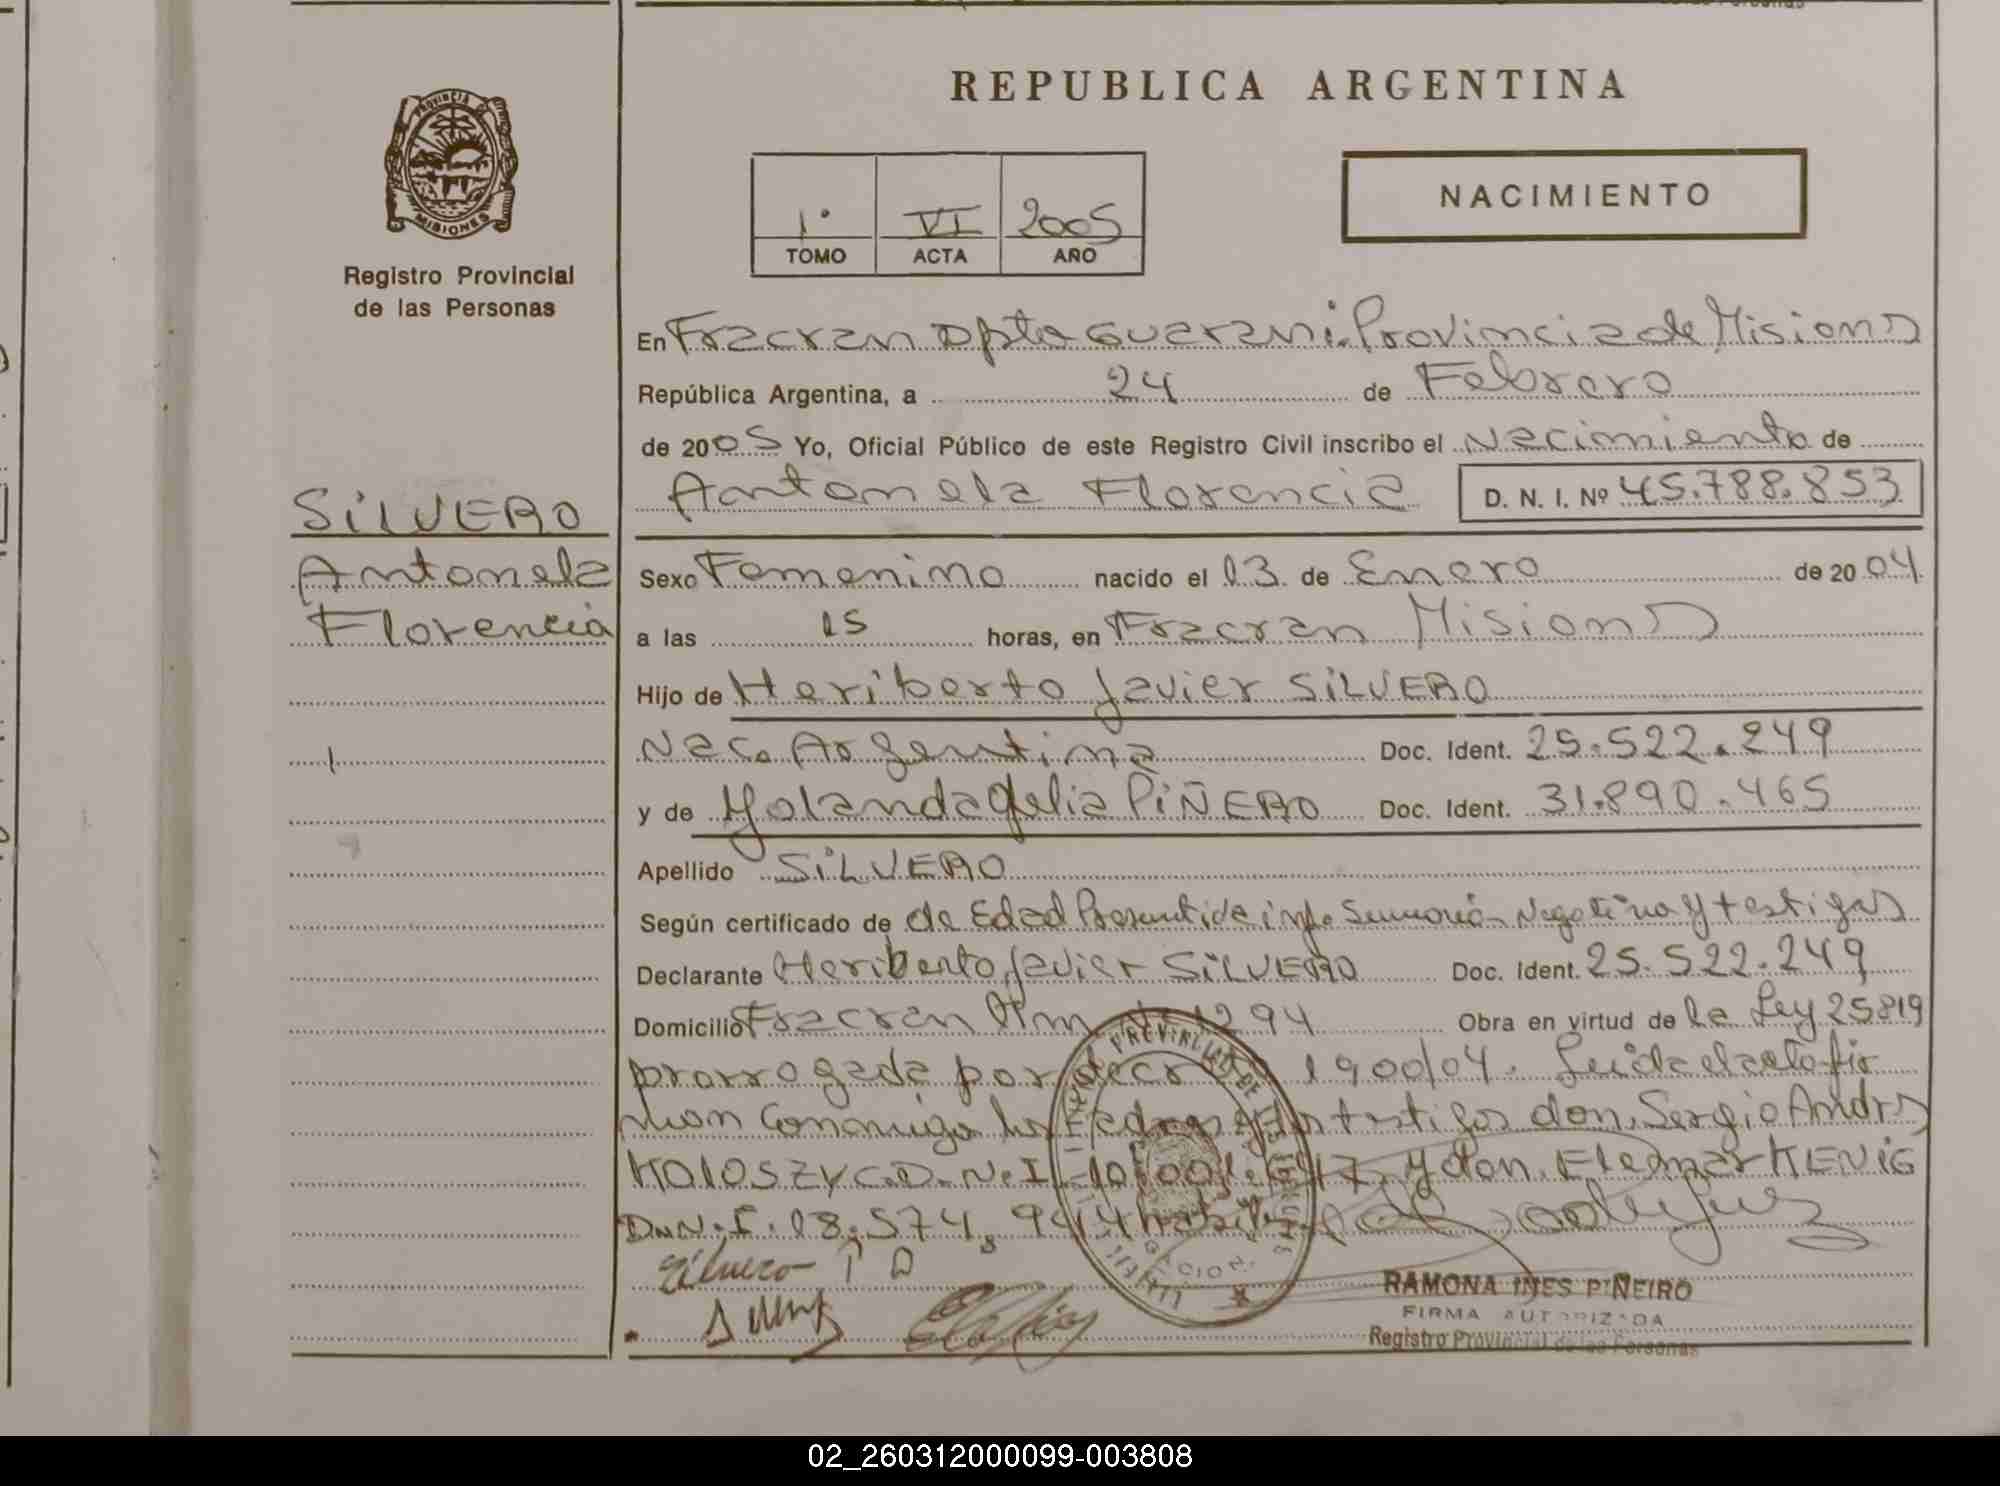 REPUBLICA ARGENTINA
PROVINCIA DE
MISIONES
Registro Provincial
de las Personas
NACIMIENTO
1° VI 2005
TOMO ACTA AÑO
En Fracran Dpto Guarani. Provincia de Misiones
República Argentina, a 24 de Febrero
de 2005 Yo, Oficial Público de este Registro Civil inscribo el Nacimiento de
Antonela Florencia D. N. I. Nº 45.788.853
SILVERO
Antonela
Florencia
Sexo Femenino nacido el 13 de Enero de 2004
a las 15 horas, en Fracran Misiones
Hijo de Heriberto Javier SILVERO
Nac. Argentina Doc. Ident. 25.522.249
y de Yolanda Delia PIÑERO Doc. Ident. 31.890.465
Apellido SILVERO
Según certificado de de Edad Presuntiva inf. Sumaria Negativa y testigos
Declarante Heriberto Javier SILVERO Doc. Ident. 25.522.249
Domicilio Fracran Km 1294 Obra en virtud de la Ley 25819
prorrogada por decr 1900/04. Leida el acta fir
man conmigo los padres y los testigos don, Sergio Andres
HOLOSZYC. D.N.I. y don. Eleomar KENIG
D.N.I. 18.574.944
Silvero
RAMONA INES PIÑEIRO
FIRMA AUTORIZADA
Registro Provincial de las Personas
02_260312000099-003808